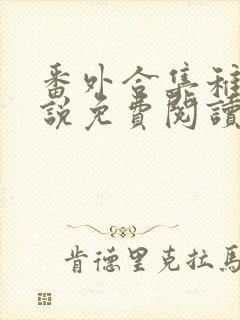 番外合集稚
説免費閱讀
肯德里克拉馬